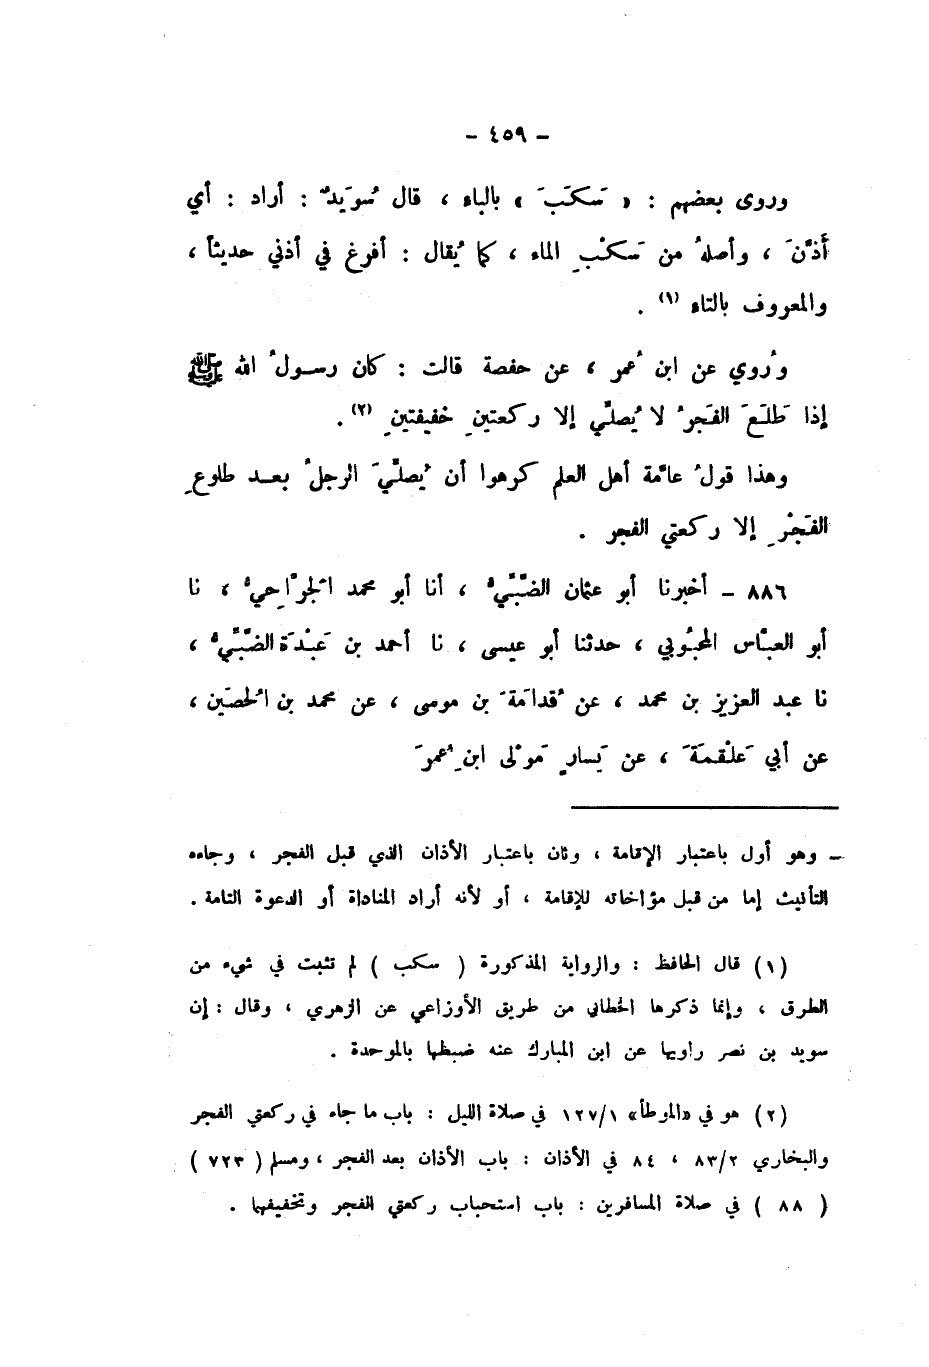 - ٤٥٩ -
وروى بعضهم : « سَكَبَ » بالباء ، قال سُوَيدٌ : أراد : أي
أَذَّنَ ، وأصلهُ من سَكْبِ الماء ، كما يُقال : أفرغ في أذني حديثاً ،
والمعروف بالتاء (١) .
ورُوي عن ابن عُمر ، عن حفصة قالت : كان رسولُ الله ﷺ
إذا طَلَعَ الفَجرُ لا يُصلّي إلا ركعتينِ خفيفتينِ (٢) .
وهذا قولُ عامَّة أهل العلم كرهوا أن يُصلّيَ الرجلُ بعد طلوعِ
الفَجْرِ إلا ركعتي الفجر .
٨٨٦ - أخبرنا أبو عثمان الضَّبِّيُّ ، أنا أبو محمد الجَرَّاحِيُّ ، نا
أبو العبَّاس المحبُوبي ، حدثنا أبو عيسى ، نا أحمد بن عَبْدَة الضَّبِّيُّ ،
نا عبد العزيز بن محمد ، عن قُدامَةَ بن موسى ، عن محمد بن الحُصَين ،
عن أبي عَلْقمَةَ ، عن يَسارٍ مَوْلى ابنِ عُمرَ
ـ وهو أول باعتبار الإقامة ، وثان باعتبار الأذان الذي قبل الفجر ، وجاءه
التأنيث إما من قبل مؤاخاته للإقامة ، أو لأنه أراد المناداة أو الدعوة التامة .
(١) قال الحافظ : والرواية المذكورة ( سكب ) لم تثبت في شيء من
الطرق ، وإنما ذكرها الخطابي من طريق الأوزاعي عن الزهري ، وقال : إن
سويد بن نصر راويها عن ابن المبارك عنه ضبطها بالموحدة .
(٢) هو في «الموطأ» ١٢٧/١ في صلاة الليل : باب ما جاء في ركعتي الفجر
والبخاري ٨٣/٢ ، ٨٤ في الأذان : باب الأذان بعد الفجر ، ومسلم ( ٧٢٣ )
( ٨٨ ) في صلاة المسافرين : باب استحباب ركعتي الفجر وتخفيفها .